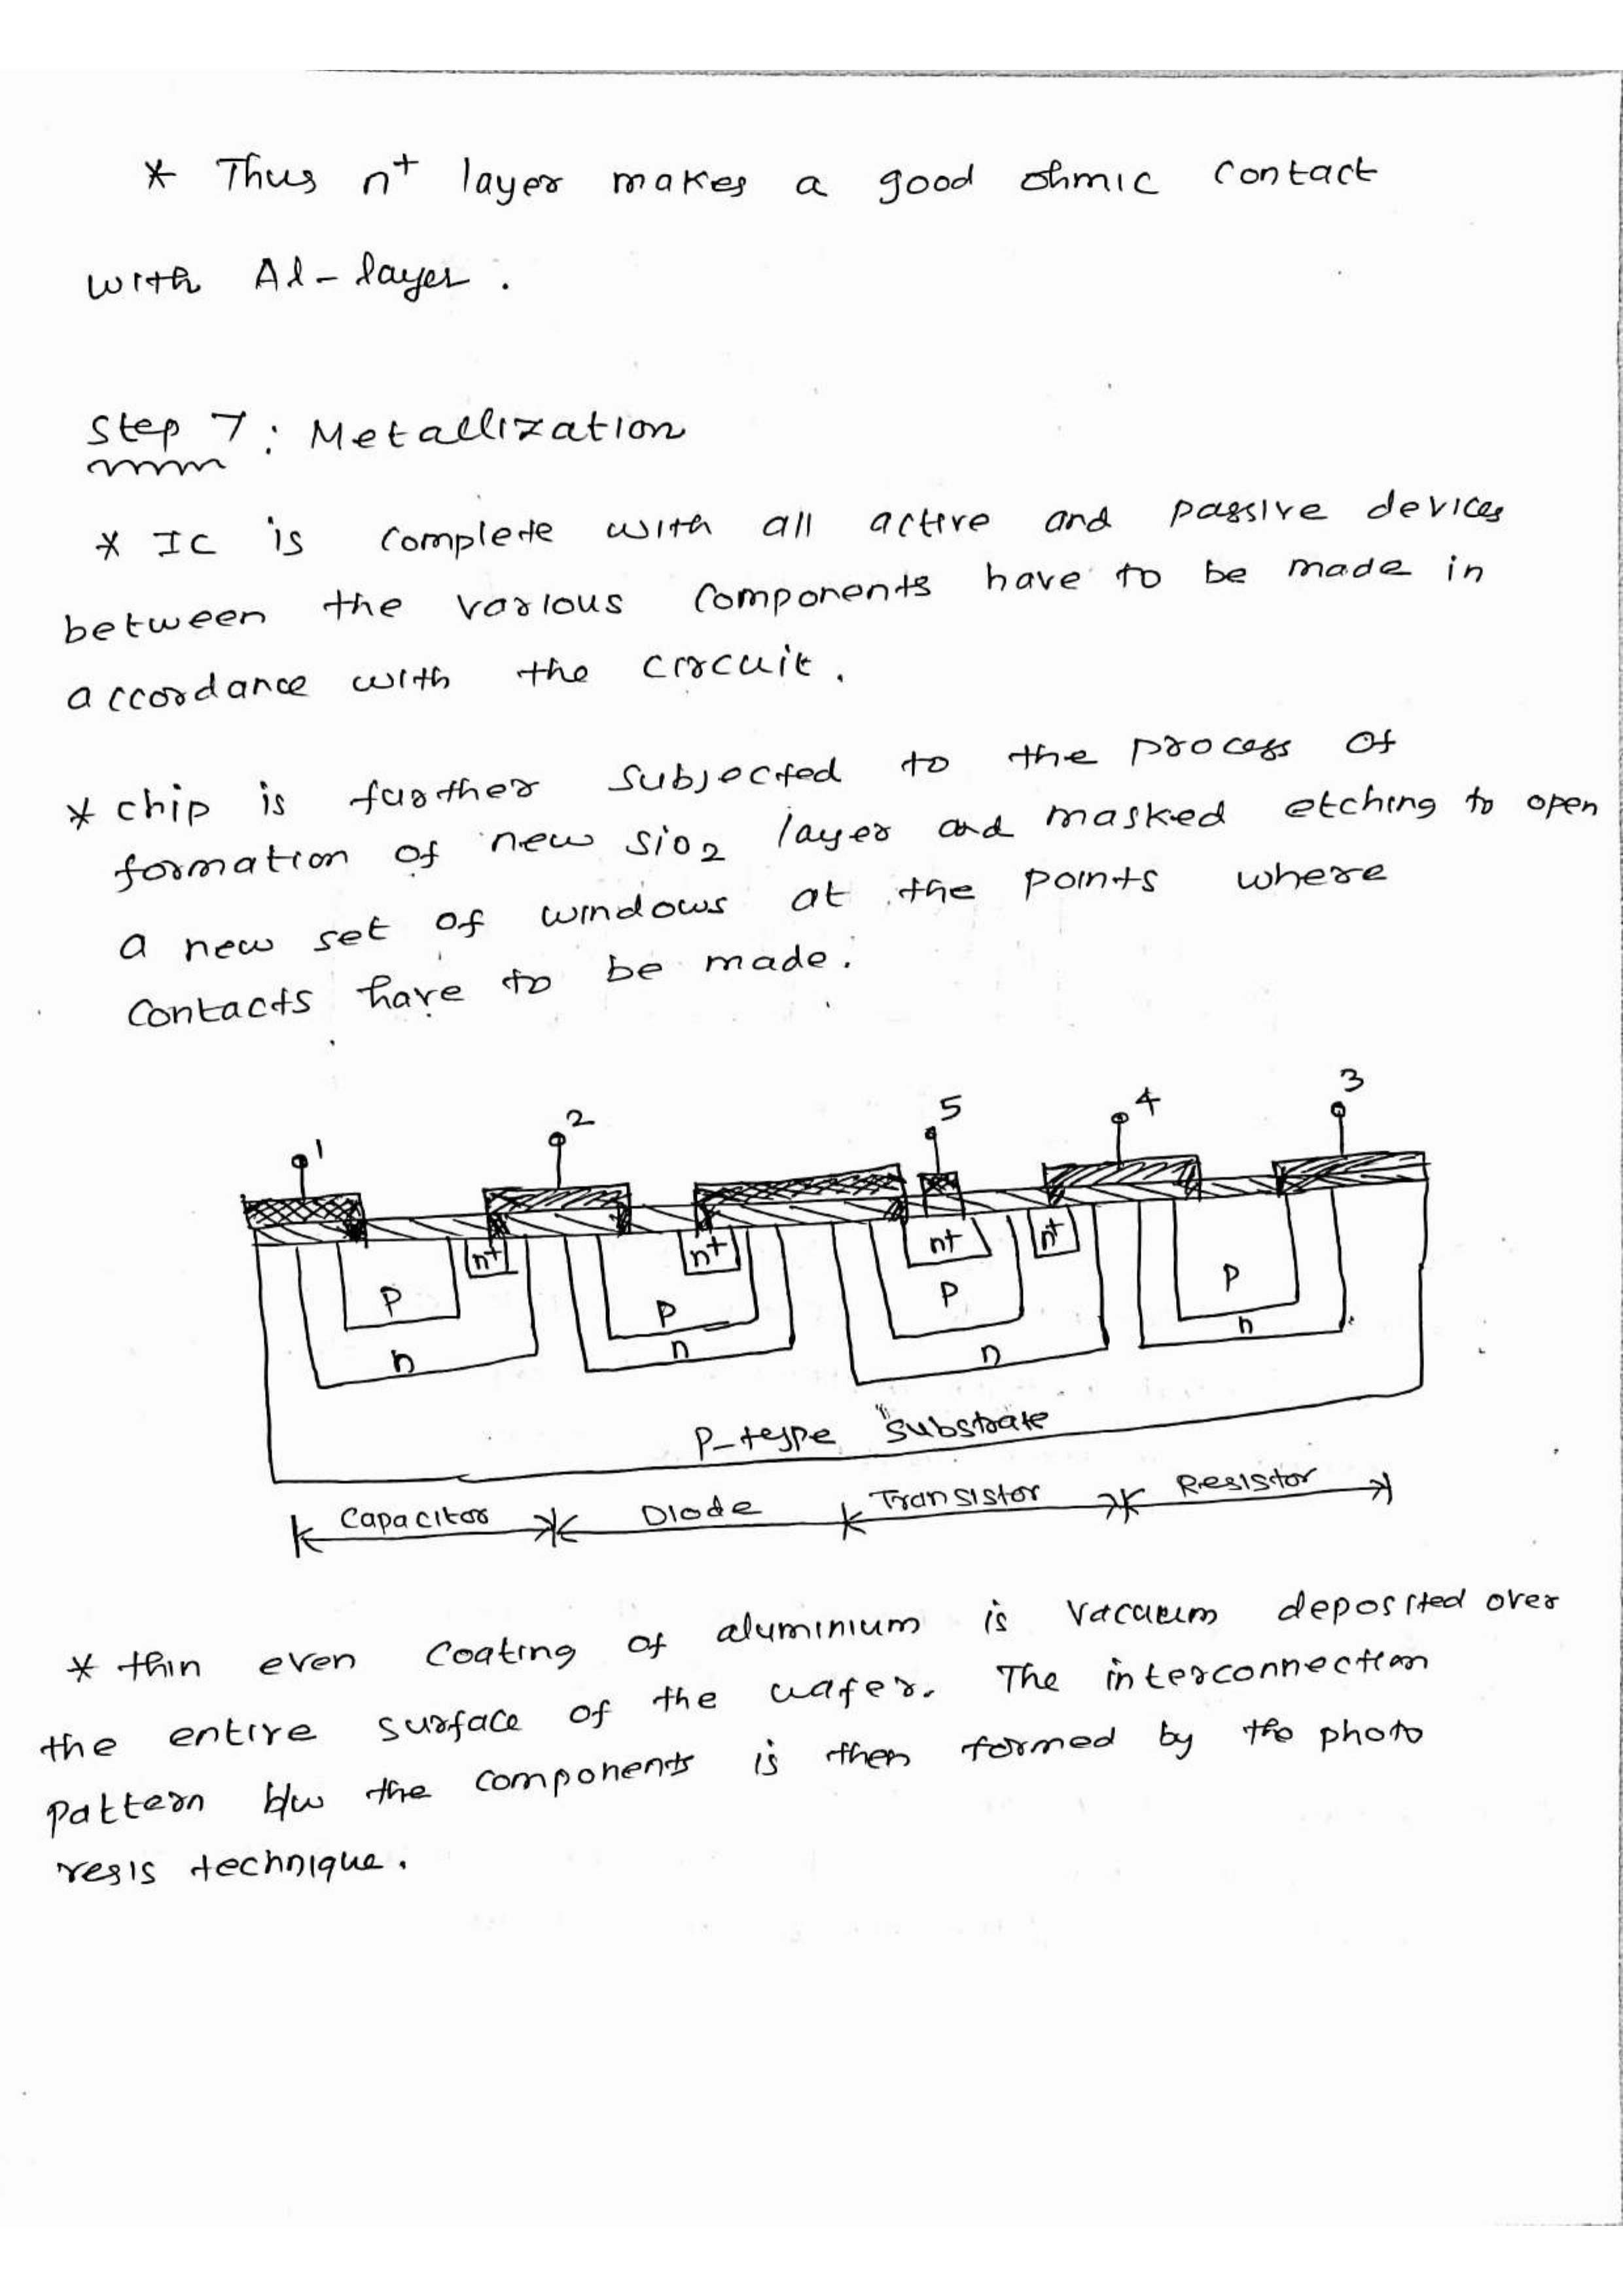 * Thus n+ layer makes a good ohmic contact
with Al-layer.
Step 7: Metallization
* IC is complete with all active and passive devices
between the various components have to be made in
accordance with the circuit.
* chip is further subjected to the process of
formation of new sio2 layer and masked etching to open
a new set of windows at the points where
contacts have to be made.
1 2 5 4 3
n+ n+ n+ n+
P P P P
n n n n
P-type substrate
Capacitor Diode Transistor Resistor
* thin even coating of aluminium is vacuum deposited over
the entire surface of the wafer. The interconnection
pattern b/w the components is then formed by the photo
resis technique.